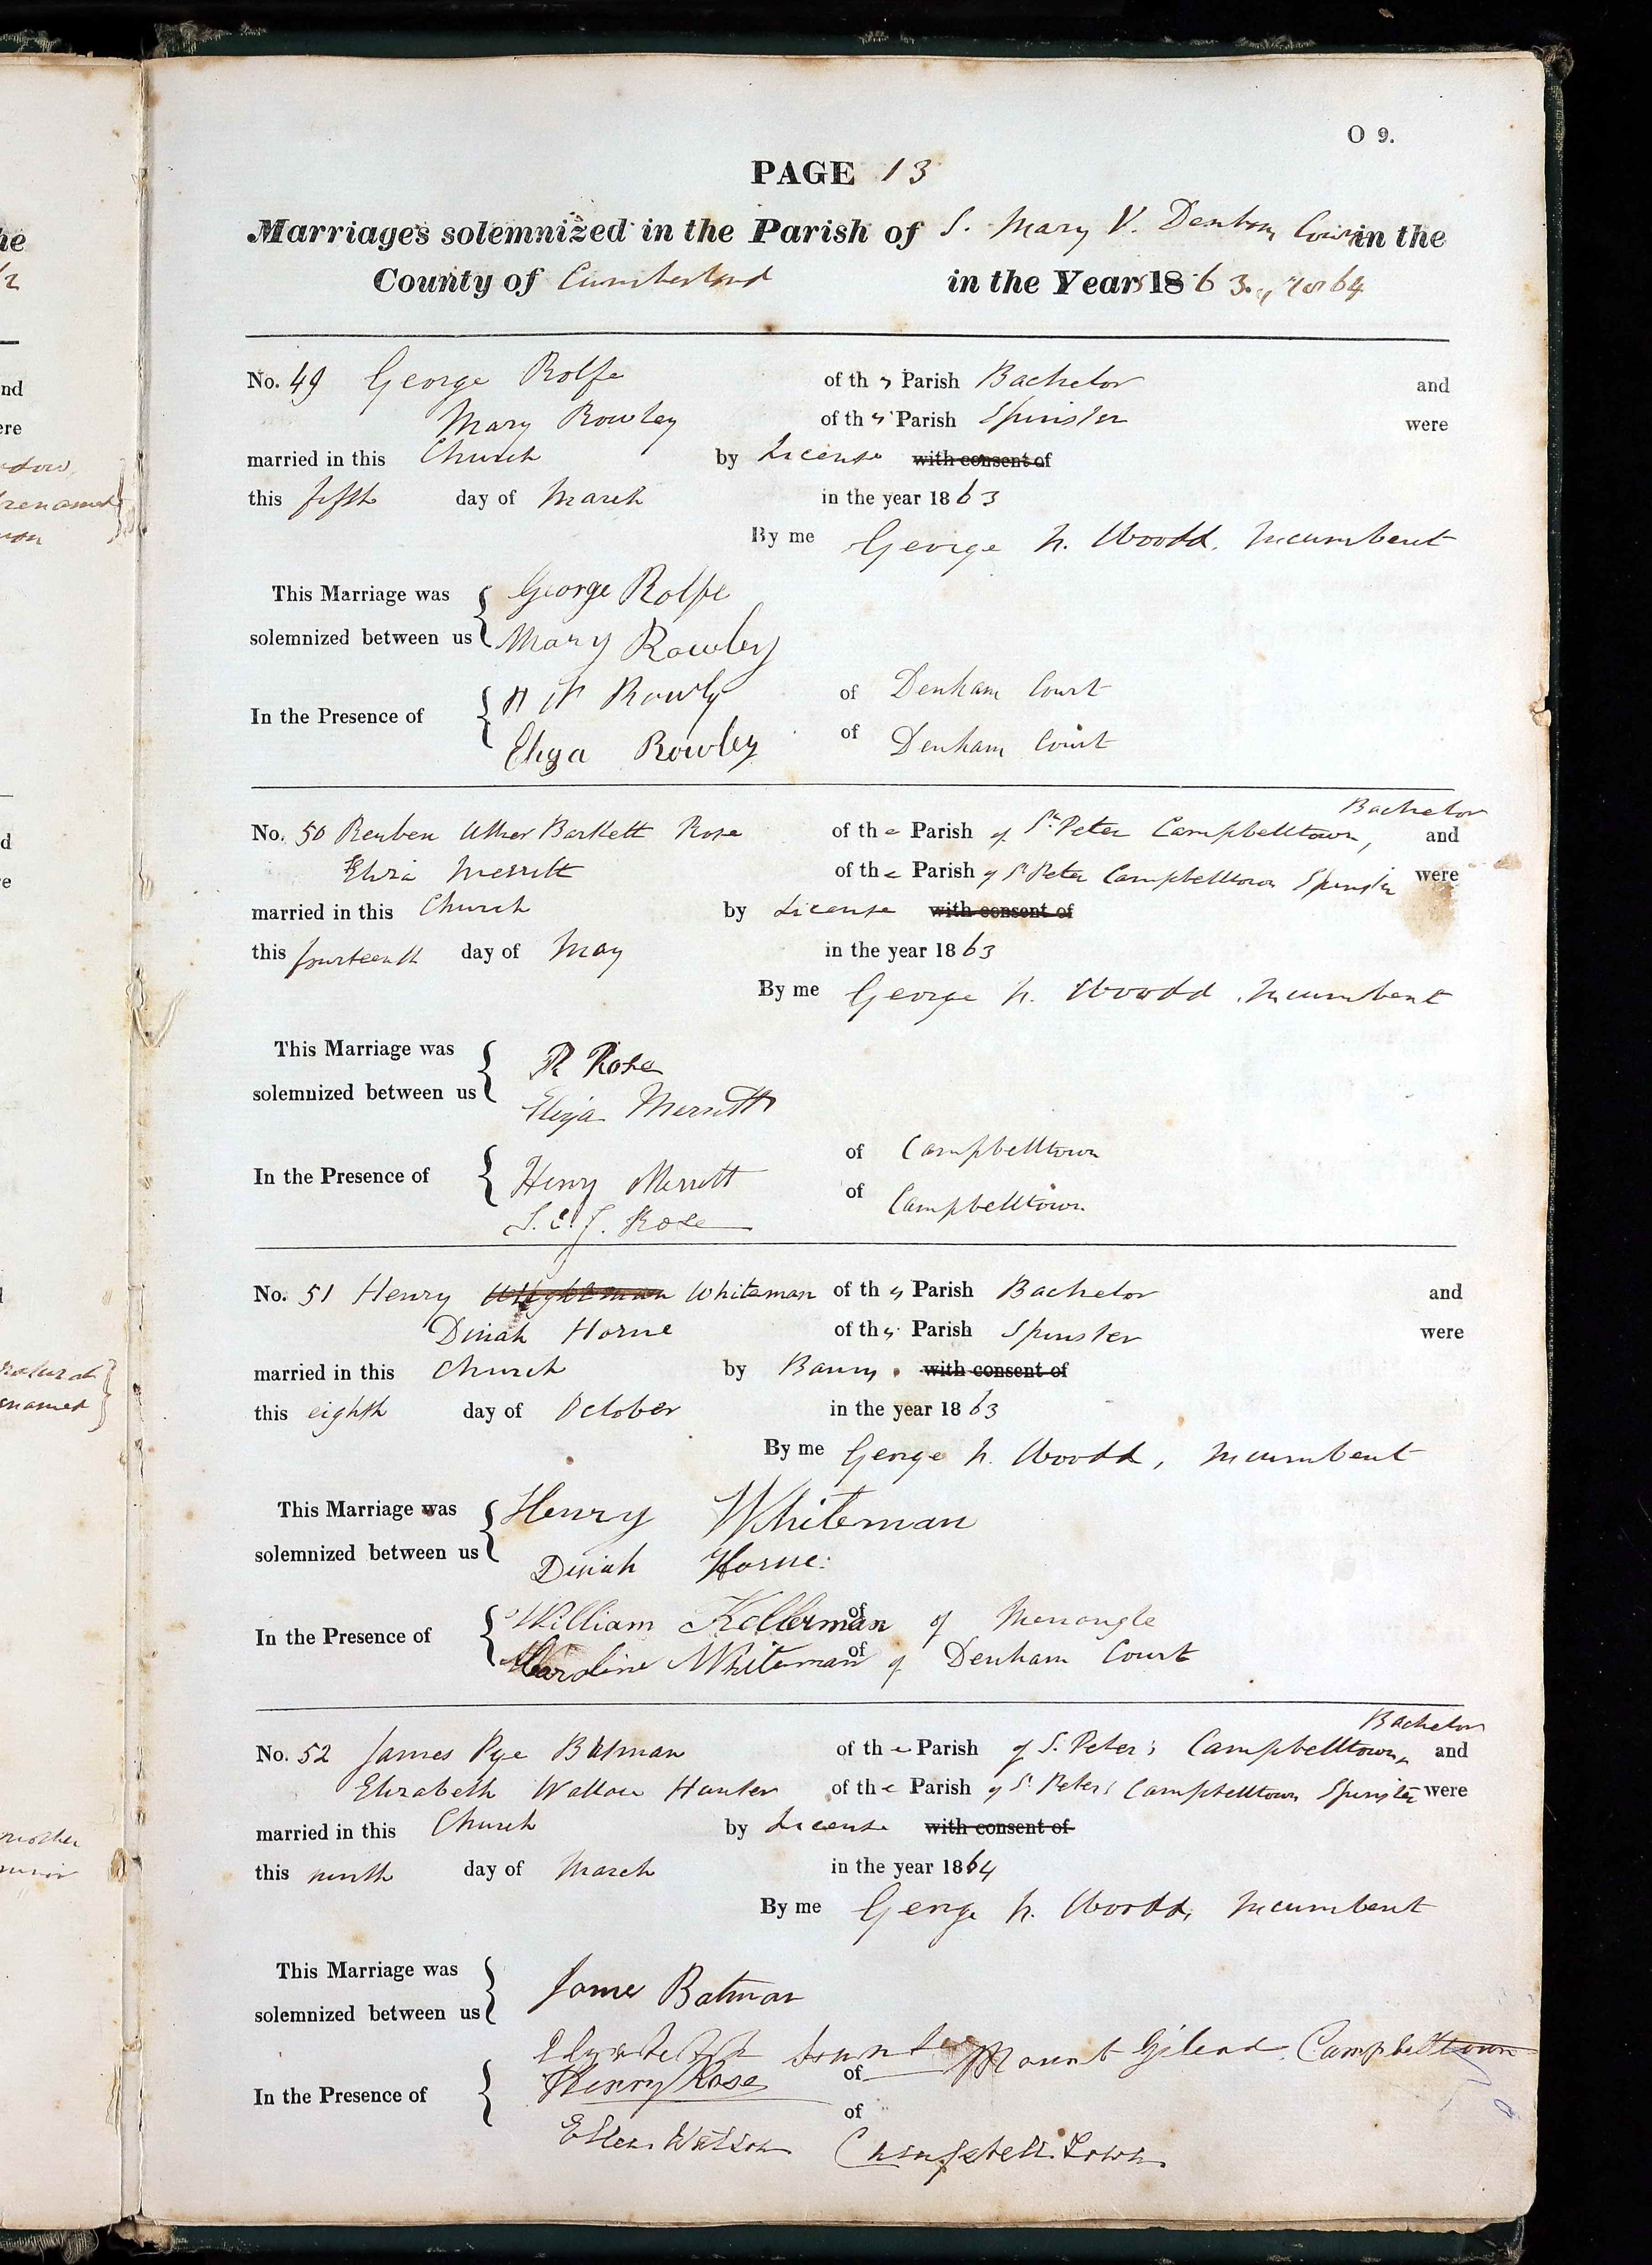 O 9.
PAGE 13
Marriages solemnized in the Parish of S. Mary V. Denham Court in the
County of Cumberland in the Years 1863. & 1864
No. 49 George Rolfe of this Parish Bachelor and
Mary Rowley of this Parish Spinster were
married in this Church by License with consent of
this fifth day of March in the year 1863
By me George N. Woodd, Incumbent
This Marriage was George Rolfe
solemnized between us Mary Rowley
In the Presence of Rowly of Denham Court
Eliza Rowley of Denham Court
Bachelor
No. 50 Reuben Uther Bartlett Rose of the Parish of St. Peter Campbelltown, and
Eliza Merritt of the Parish of St Peter Campbelltown Spinster were
married in this Church by License with consent of
this fourteenth day of May in the year 1863
By me George N. Woodd, Incumbent
This Marriage was R Rose
solemnized between us Eliza Merritt
In the Presence of Henry Merritt of Campbelltown
Rose of Campbelltown
No. 51 Henry Whiteman of this Parish Bachelor and
Dinah Horne of this Parish Spinster were
married in this Church by Banns. with consent of
this eighth day of October in the year 1863
By me George N. Woodd, Incumbent
This Marriage was Henry Whiteman
solemnized between us Dinah Horne
In the Presence of William Kellerman of of Menangle
Caroline Whiteman of of Denham Court
Bachelor
No. 52 James Pye Batman of the Parish of S. Peter's Campbelltown, and
Elizabeth Wallace Hunter of the Parish of St Peter's Campbelltown Spinster were
married in this Church by License with consent of
this ninth day of March in the year 1864
By me George N. Woodd, Incumbent
This Marriage was James Batman
solemnized between us
Elizabeth Hunter
In the Presence of Henry Rose of Mount Gilead. Campbelltown
of
Ellen Watson Campbell Town.